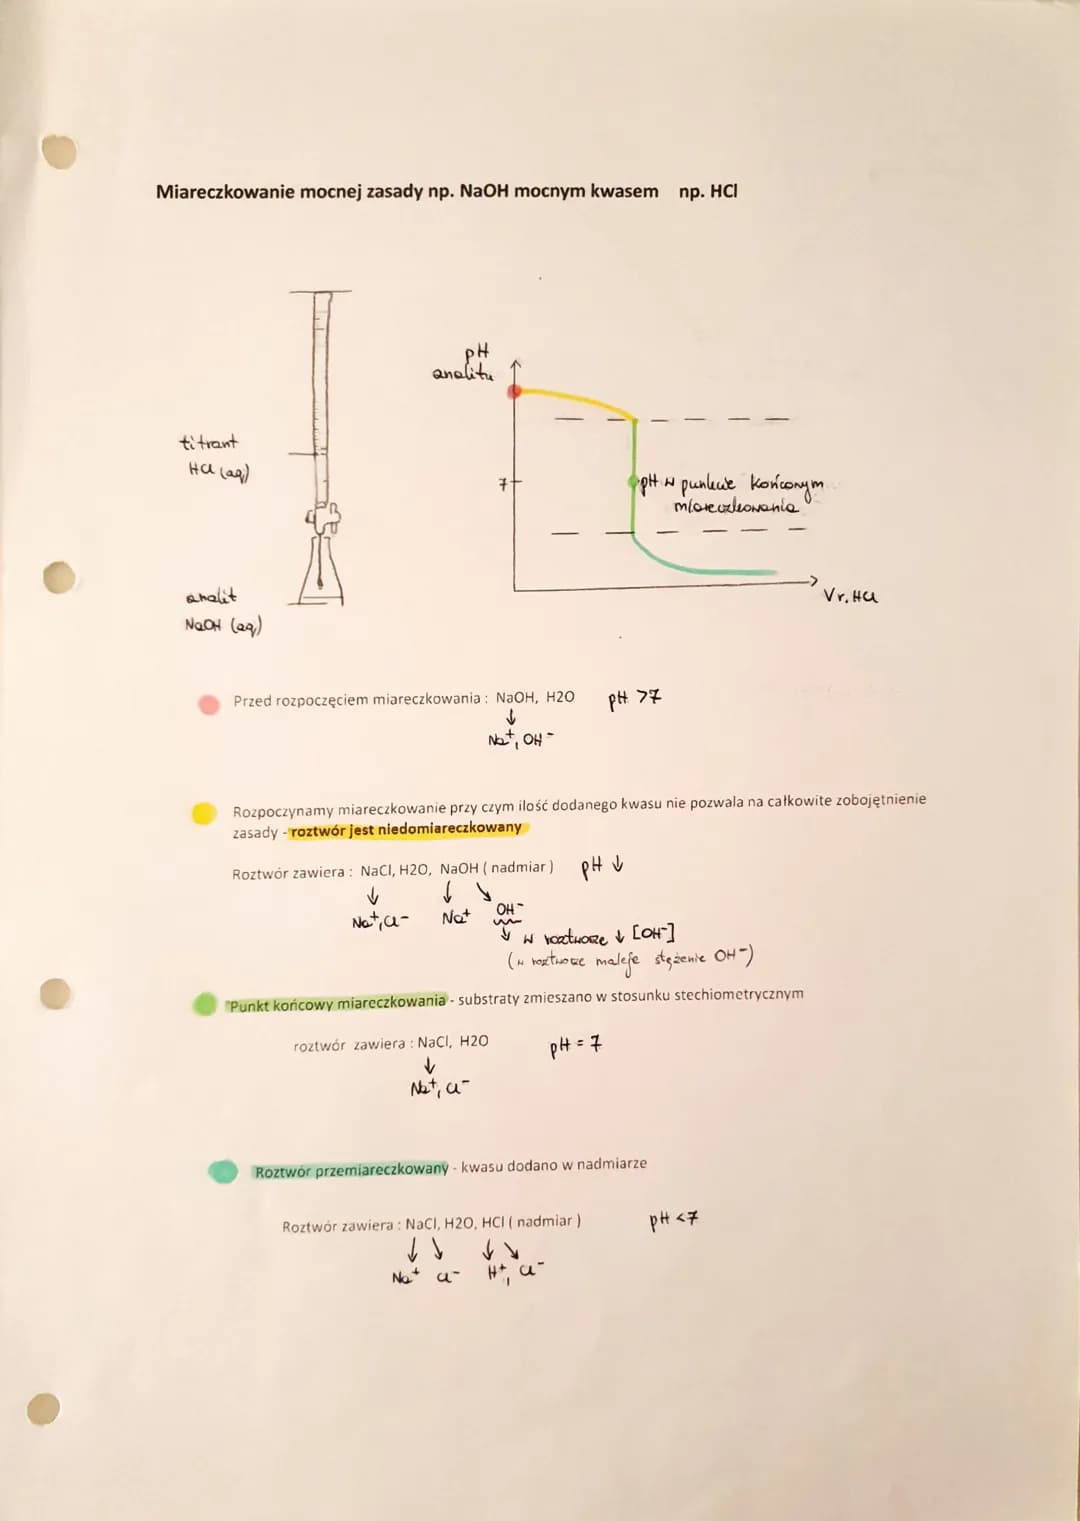 Miareczkowanie mocnej zasady np. NaOH mocnym kwasem np. HCl
pH
analitu
titrant
HCl (aq)
7
pH w punkcie końconym
miareczkowania
analit
NaOH (aq)
Vr. HCl
Przed rozpoczęciem miareczkowania : NaOH, H2O pH >7
↓
Na⁺, OH⁻
Rozpoczynamy miareczkowanie przy czym ilość dodanego kwasu nie pozwala na całkowite zobojętnienie
zasady - roztwór jest niedomiareczkowany
Roztwór zawiera : NaCl, H2O, NaOH ( nadmiar ) pH ↓
↓ ↓ ↘
Na⁺, Cl⁻ Na⁺ OH⁻
↓ w roztworze ↓ [OH⁻]
(w roztworze maleje stężenie OH⁻)
"Punkt końcowy miareczkowania - substraty zmieszano w stosunku stechiometrycznym
roztwór zawiera : NaCl, H2O pH = 7
↓
Na⁺, Cl⁻
Roztwór przemiareczkowany - kwasu dodano w nadmiarze
Roztwór zawiera : NaCl, H2O, HCl ( nadmiar ) pH <7
↓ ↘ ↓ ↘
Na⁺ Cl⁻ H⁺, Cl⁻